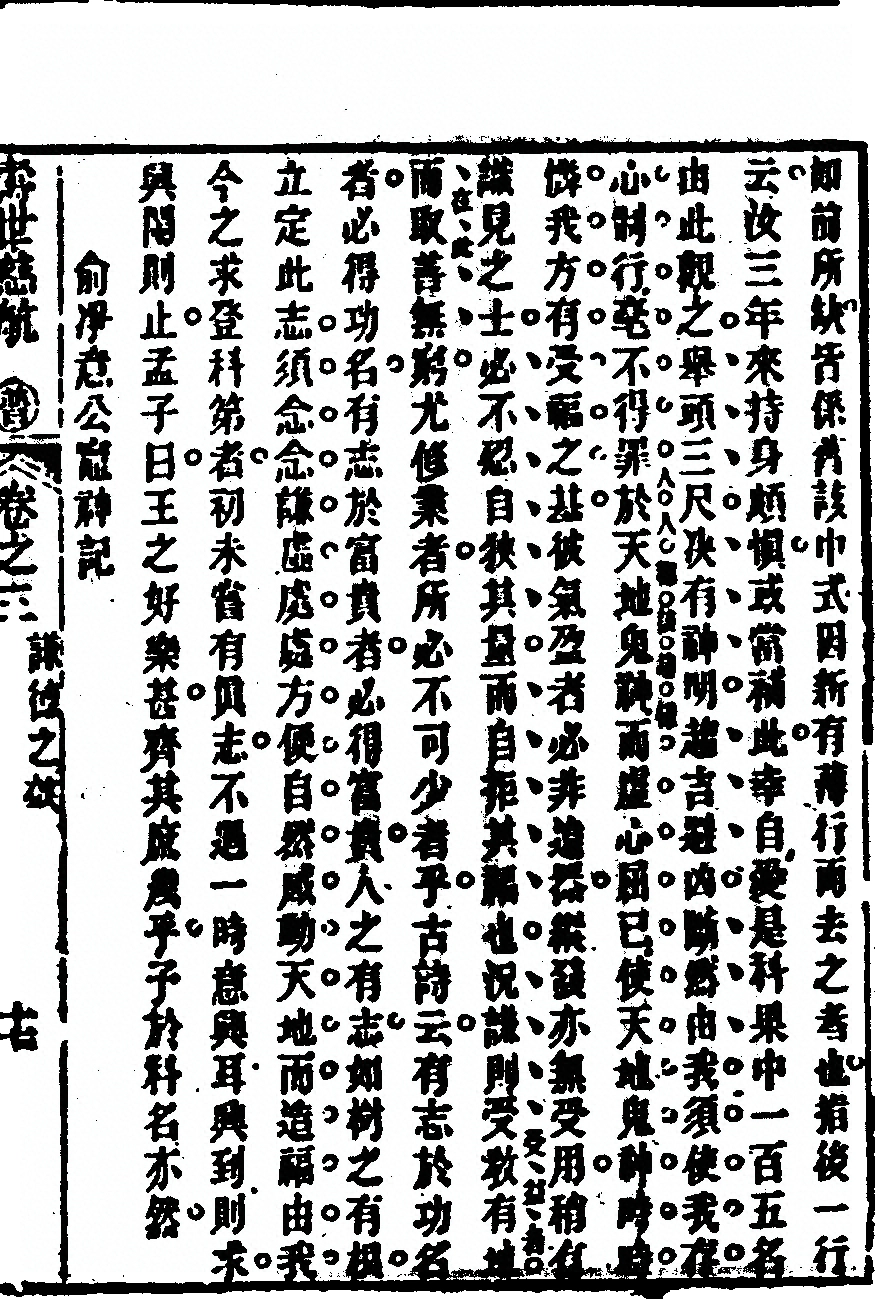 即前所缺皆係舊該中式因新有薄行而去之者也指後一行
云汝三年來持身頗慎或當補此幸自愛是科果中一百五名
由此觀之舉頭三尺決有神明趨吉避凶斷然由我須使我存
心制行毫不得罪於天地鬼神而虛心屈已使天地鬼神時時
憐我方有受福之基彼氣盈者必非遠器縱發亦無受用稍有
識見之士必不忍自狹其量而自拒其福也況謙則受教有地
而取善無窮尤修業者所必不可少者乎古詩云有志於功名
者必得功名有志於富貴者必得富貴人之有志如樹之有根
立定此志須念念謙虛處處方便自然感動天地而造福由我
今之求登科第者初未嘗有真志不過一時意興耳興到則求
興闌則止孟子曰王之好樂甚齊其庶幾乎予於科名亦然
俞淨意公竈神記
壽世慈航
卷之三
謙德之效